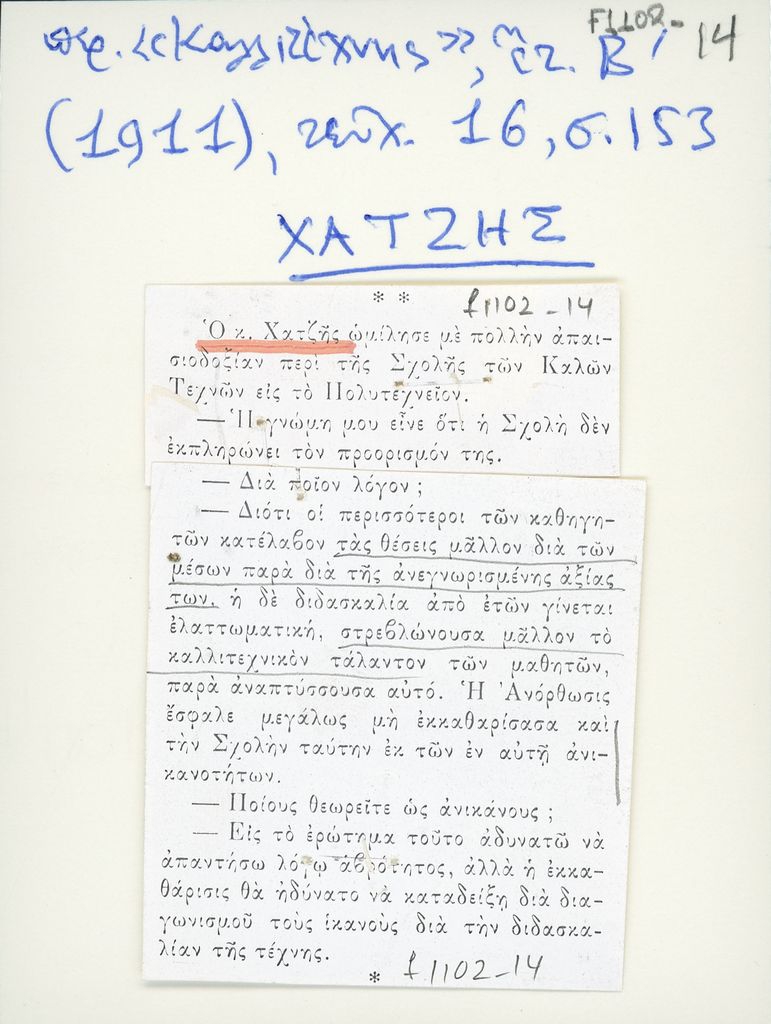 F1102-14
περ. «Καλλιτέχνης», ἔτ. Β'
(1911), τεῦχ. 16, σ. 153
ΧΑΤΖΗΣ
* *
f1102-14
Ὁ κ. Χατζῆς ὡμίλησε μὲ πολλὴν ἀπαι-
σιοδοξίαν περὶ τῆς Σχολῆς τῶν Καλῶν
Τεχνῶν εἰς τὸ Πολυτεχνεῖον.
— Ἡ γνώμη μου εἶνε ὅτι ἡ Σχολὴ δὲν
ἐκπληρώνει τὸν προορισμόν της.
— Διὰ ποῖον λόγον ;
— Διότι οἱ περισσότεροι τῶν καθηγη-
τῶν κατέλαβον τὰς θέσεις μᾶλλον διὰ τῶν
μέσων παρὰ διὰ τῆς ἀνεγνωρισμένης ἀξίας
των, ἡ δὲ διδασκαλία ἀπὸ ἐτῶν γίνεται
ἐλαττωματική, στρεβλώνουσα μᾶλλον τὸ
καλλιτεχνικὸν τάλαντον τῶν μαθητῶν,
παρὰ ἀναπτύσσουσα αὐτό. Ἡ Ἀνόρθωσις
ἔσφαλε μεγάλως μὴ ἐκκαθαρίσασα καὶ
τὴν Σχολὴν ταύτην ἐκ τῶν ἐν αὐτῇ ἀνι-
κανοτήτων.
— Ποίους θεωρεῖτε ὡς ἀνικάνους ;
— Εἰς τὸ ἐρώτημα τοῦτο ἀδυνατῶ νὰ
ἀπαντήσω λόγῳ ἁβρότητος, ἀλλὰ ἡ ἐκκα-
θάρισις θὰ ἠδύνατο νὰ καταδείξῃ διὰ δια-
γωνισμοῦ τοὺς ἱκανοὺς διὰ τὴν διδασκα-
λίαν τῆς τέχνης.
*
f1102-14